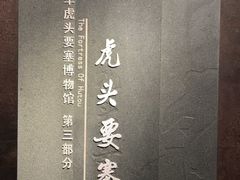 虎头要塞
The Fortress Of Hutou
虎头要塞博物馆 第三部分